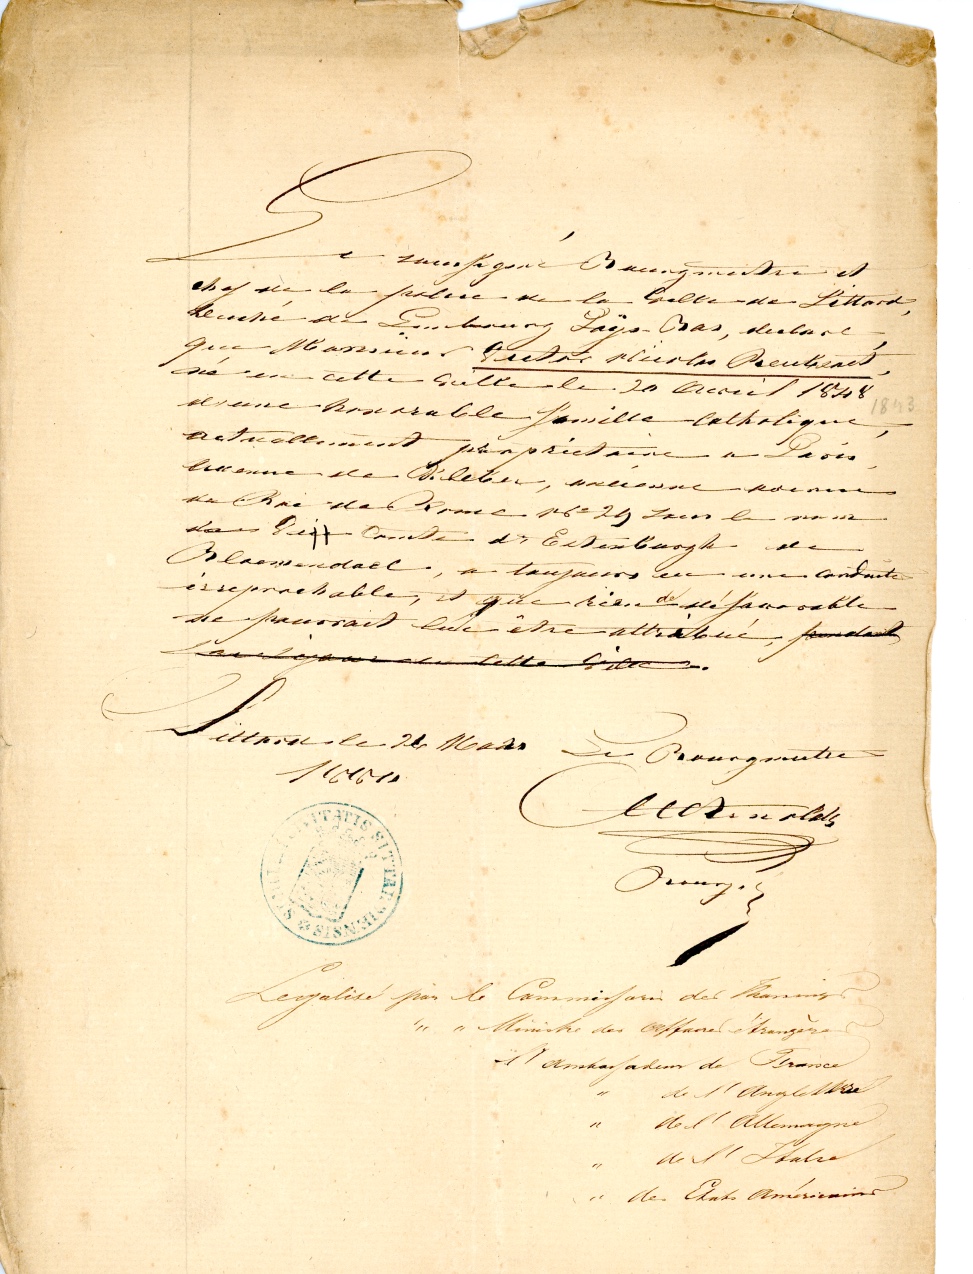 Le soussigné Bourgmestre et
chef de la police de la Ville de Sittard,
Duché de Limbourg Pays-Bas, déclare,
que Monsieur Victor Nicolas
né en cette ville le 20 Avril 1848
1843
d'une honorable famille Catholique,
actuellement propriétaire a Paris,
Avenue de Kleber, ancienne avenue
du Roi de Rome No 29 sous le nom
de Comte d'Estenburgh de
Bloemendael, a toujours eu une conduite
irreprochable, et que rien de défavorable
ne pourrait lui être attribué, pendant
cette Ville.
Sittard le Mars
Le Bourgmestre
Arnolds
SIGILL. CIVITATIS SITTARDIENSIS
Legalisé par le Commissaire du
" " Ministre des Affaires étrangères
l'ambassadeur de France
" de l'Angleterre
" de l'Allemagne
" de l'Italie
" des Etats Américains